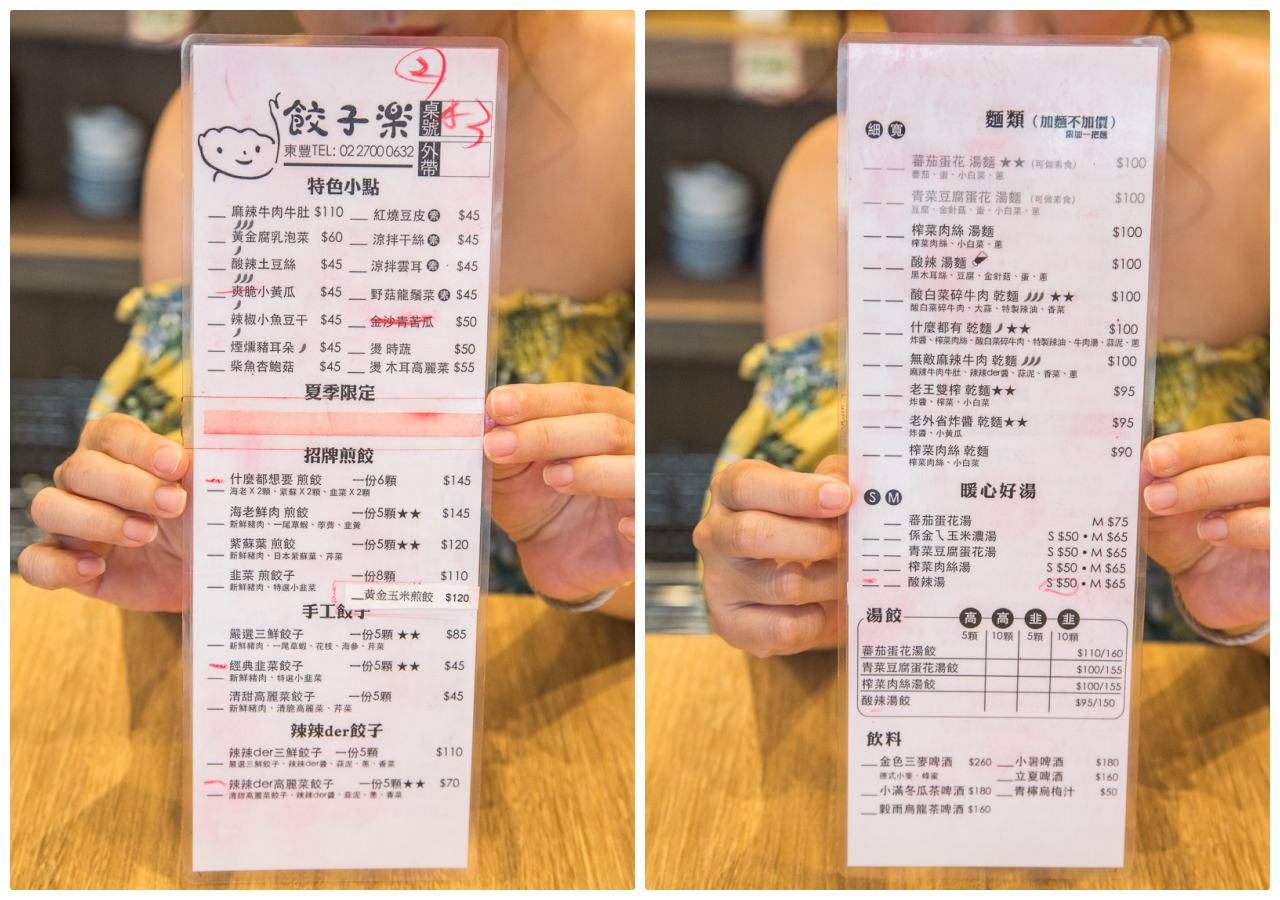 餃子楽
桌號
東豐TEL: 02 2700 0632
外帶
特色小點
麻辣牛肉牛肚 $110 紅燒豆皮 素 $45
黃金腐乳泡菜 $60 涼拌干絲 素 $45
酸辣土豆絲 $45 涼拌雲耳 素 $45
爽脆小黃瓜 $45 野菇龍鬚菜 素 $45
辣椒小魚豆干 $45 金沙青苦瓜 $50
煙燻豬耳朵 $45 燙 時蔬 $50
柴魚杏鮑菇 $45 燙 木耳高麗菜 $55
夏季限定
招牌煎餃
什麼都想要 煎餃 一份6顆 $145
海老X2顆、紫蘇X2顆、韭菜X2顆
海老鮮肉 煎餃 一份5顆★★ $145
新鮮豬肉、一尾草蝦、荸薺、韭黃
紫蘇葉 煎餃 一份5顆★★ $120
新鮮豬肉、日本紫蘇葉、芹菜
韭菜 煎餃子 一份8顆 $110
新鮮豬肉、特選小韭菜
黃金玉米煎餃 $120
手工餃子
嚴選三鮮餃子 一份5顆 ★★ $85
新鮮豬肉、一尾草蝦、花枝、海參、芹菜
經典韭菜餃子 一份5顆 ★★ $45
新鮮豬肉、特選小韭菜
清甜高麗菜餃子 一份5顆 $45
新鮮豬肉、清脆高麗菜、芹菜
辣辣der餃子
辣辣der三鮮餃子 一份5顆 $110
嚴選三鮮餃子、辣辣der醬、蒜泥、蔥、香菜
辣辣der高麗菜餃子 一份5顆★★ $70
清甜高麗菜餃子、辣辣der醬、蒜泥、蔥、香菜
細 寬
麵類 (加麵不加價)
蕃茄蛋花 湯麵 ★★ (可做素食) $100
番茄、蛋、小白菜、蔥
青菜豆腐蛋花 湯麵 (可做素食) $100
豆腐、金針菇、蛋、小白菜、蔥
榨菜肉絲 湯麵 $100
榨菜肉絲、小白菜、蔥
酸辣 湯麵 $100
黑木耳絲、豆腐、金針菇、蛋、蔥
酸白菜碎牛肉 乾麵 ★★ $100
酸白菜碎牛肉、大蒜、特製辣油、香菜
什麼都有 乾麵 ★★ $100
炸醬、榨菜肉絲、酸白菜碎牛肉、特製辣油、牛肉湯、蒜泥、蔥
無敵麻辣牛肉 乾麵 $100
麻辣牛肉牛肚、辣辣der醬、蒜泥、香菜、蔥
老王雙榨 乾麵★★ $95
炸醬、榨菜、小白菜
老外省炸醬 乾麵★★ $95
炸醬、小黃瓜
榨菜肉絲 乾麵 $90
榨菜肉絲、小白菜
S M
暖心好湯
蕃茄蛋花湯 M $75
係金ㄟ玉米濃湯 S $50 • M $65
青菜豆腐蛋花湯 S $50 • M $65
榨菜肉絲湯 S $50 • M $65
酸辣湯 S $50 • M $65
湯餃 高 高 韭 韭
5顆 10顆 5顆 10顆
蕃茄蛋花湯餃 $110/160
青菜豆腐蛋花湯餃 $100/155
榨菜肉絲湯餃 $100/155
酸辣湯餃 $95/150
飲料
金色三麥啤酒 $260 小暑啤酒 $180
德式小麥、蜂蜜 立夏啤酒 $160
小滿冬瓜茶啤酒 $180 青檸烏梅汁 $50
穀雨烏龍茶啤酒 $160